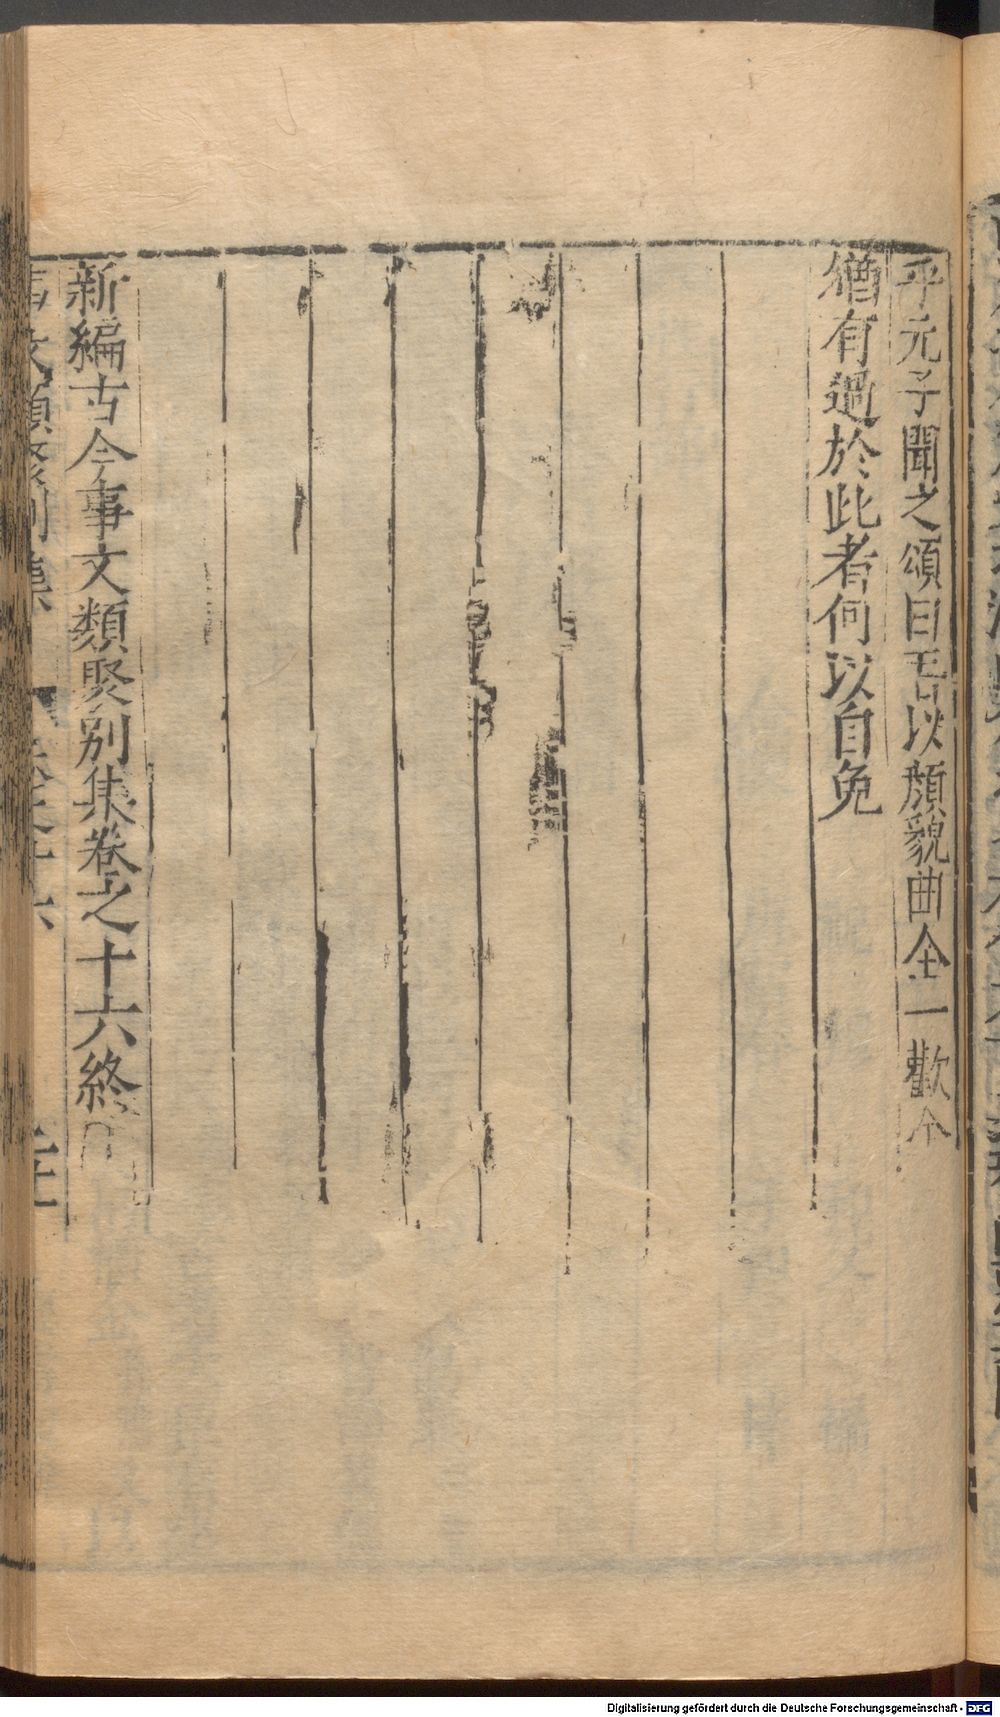 乎元子聞之頌曰吾以顏貌曲全一歡全
猶有過於此者何以自免
新編古今事文類聚別集卷之十六終
事文類聚別集
卷之十六
Digitalisierung gefördert durch die Deutsche Forschungsgemeinschaft - DFG